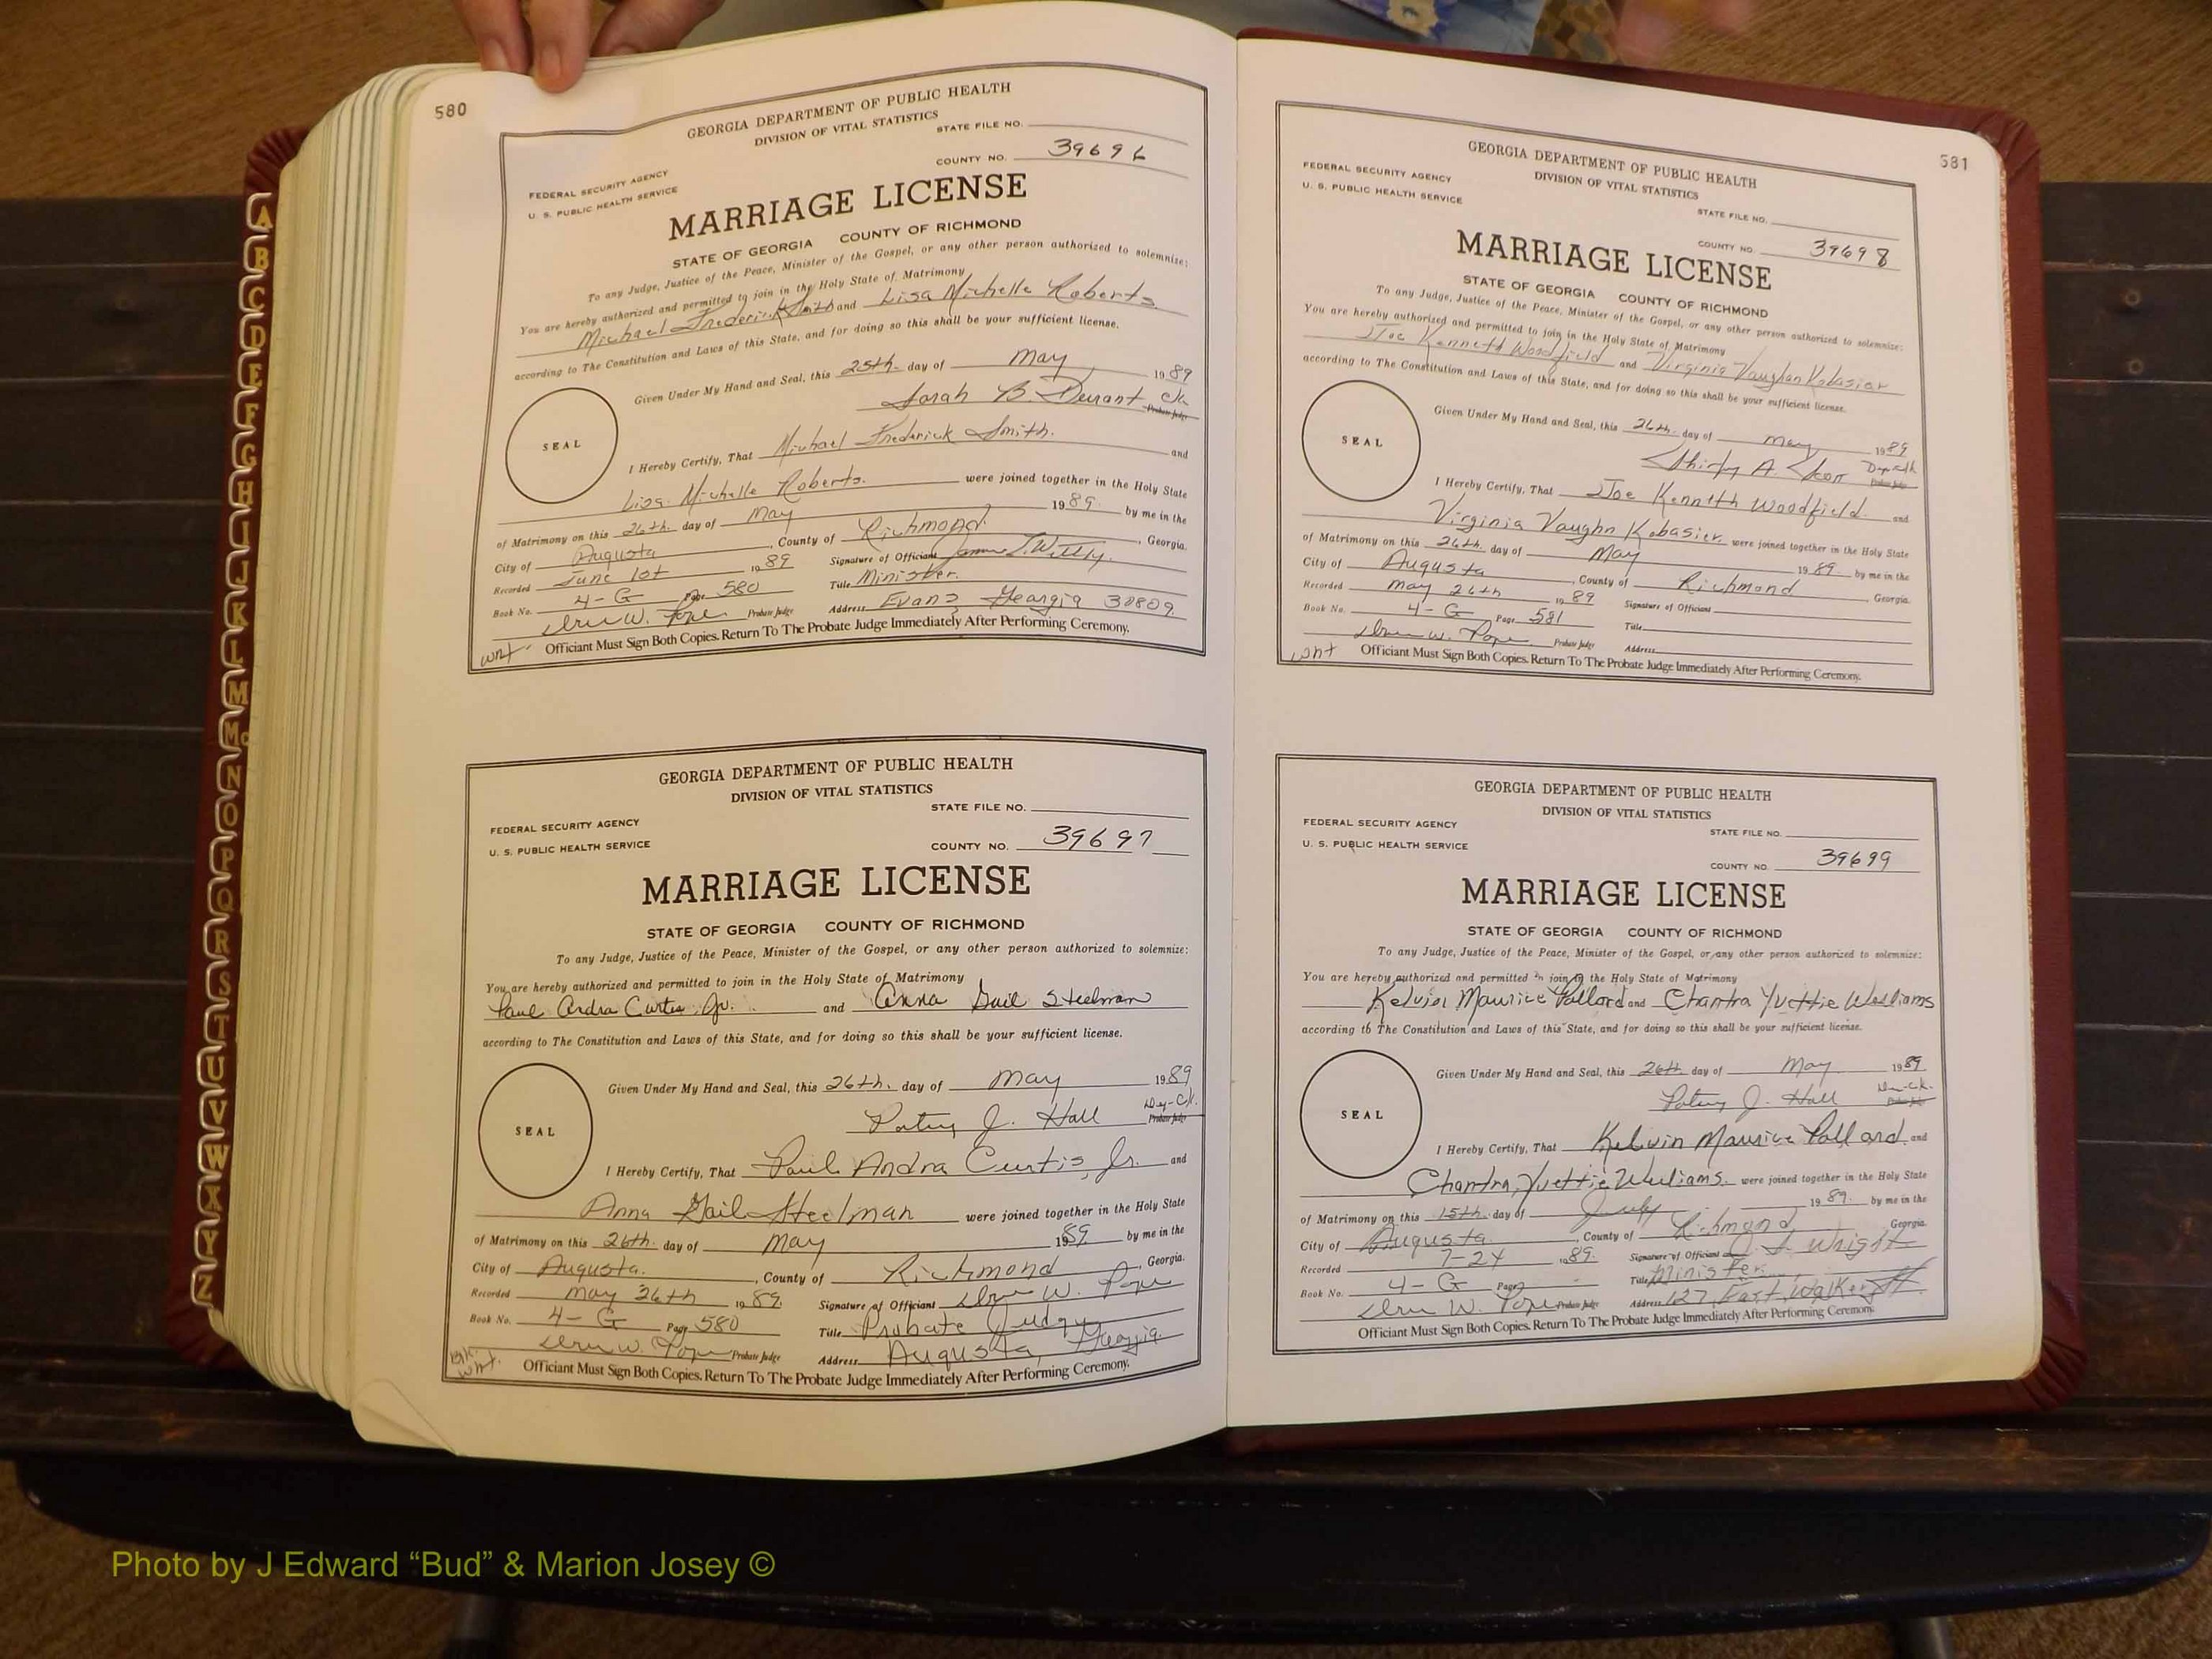 580
GEORGIA DEPARTMENT OF PUBLIC HEALTH
DIVISION OF VITAL STATISTICS
STATE FILE NO.
COUNTY NO. 39696
FEDERAL SECURITY AGENCY
U. S. PUBLIC HEALTH SERVICE
MARRIAGE LICENSE
STATE OF GEORGIA COUNTY OF RICHMOND
To any Judge, Justice of the Peace, Minister of the Gospel, or any other person authorized to solemnize:
You are hereby authorized and permitted to join in the Holy State of Matrimony
Michael Frederick Smith and Lisa Michelle Roberts
according to The Constitution and Laws of this State, and for doing so this shall be your sufficient license.
Given Under My Hand and Seal, this 25th day of May 1989
Sarah B. Durant Clk
Probate Judge
SEAL
I Hereby Certify, That Michael Frederick Smith. and
Lisa Michelle Roberts. were joined together in the Holy State
of Matrimony on this 26th. day of May 1989. by me in the
City of Augusta, County of Richmond, Georgia.
Recorded June 1st 1989 Signature of Officiant
Book No. 4-G Page 580 Title Minister.
Probate Judge Address Evans Georgia 30809.
wnt Officiant Must Sign Both Copies. Return To The Probate Judge Immediately After Performing Ceremony.
GEORGIA DEPARTMENT OF PUBLIC HEALTH
DIVISION OF VITAL STATISTICS
STATE FILE NO.
FEDERAL SECURITY AGENCY
U. S. PUBLIC HEALTH SERVICE
COUNTY NO. 39697
MARRIAGE LICENSE
STATE OF GEORGIA COUNTY OF RICHMOND
To any Judge, Justice of the Peace, Minister of the Gospel, or any other person authorized to solemnize:
You are hereby authorized and permitted to join in the Holy State of Matrimony
Paul Andra Curtis, Jr. and Anna Gail Steelman
according to The Constitution and Laws of this State, and for doing so this shall be your sufficient license.
Given Under My Hand and Seal, this 26th. day of May 1989
Patsy J. Hall Dep-Clk.
Probate Judge
SEAL
I Hereby Certify, That Paul Andra Curtis, Jr. and
Anna Gail Steelman were joined together in the Holy State
of Matrimony on this 26th. day of May 1989 by me in the
City of Augusta., County of Richmond, Georgia.
Recorded May 26th 1989. Signature of Officiant W. Pope
Book No. 4-G Page 580 Title Probate Judge
W. Pope Probate Judge Address Augusta, Georgia.
wnt. Officiant Must Sign Both Copies. Return To The Probate Judge Immediately After Performing Ceremony.
581
GEORGIA DEPARTMENT OF PUBLIC HEALTH
DIVISION OF VITAL STATISTICS
FEDERAL SECURITY AGENCY
U. S. PUBLIC HEALTH SERVICE
STATE FILE NO.
COUNTY NO. 39698
MARRIAGE LICENSE
STATE OF GEORGIA COUNTY OF RICHMOND
To any Judge, Justice of the Peace, Minister of the Gospel, or any other person authorized to solemnize:
You are hereby authorized and permitted to join in the Holy State of Matrimony
Joe Kenneth Woodfield and Virginia Vaughan Kobasier
according to The Constitution and Laws of this State, and for doing so this shall be your sufficient license.
Given Under My Hand and Seal, this 26th. day of May 1989
Shirley A. Dep Clk
Probate Judge
SEAL
I Hereby Certify, That Joe Kenneth Woodfield and
Virginia Vaughn Kobasier. were joined together in the Holy State
of Matrimony on this 26th. day of May 1989. by me in the
City of Augusta, County of Richmond, Georgia.
Recorded May 26th 1989 Signature of Officiant
Book No. 4-G Page 581 Title
W. Pope Probate Judge Address
wnt Officiant Must Sign Both Copies. Return To The Probate Judge Immediately After Performing Ceremony.
GEORGIA DEPARTMENT OF PUBLIC HEALTH
DIVISION OF VITAL STATISTICS
FEDERAL SECURITY AGENCY
STATE FILE NO.
U. S. PUBLIC HEALTH SERVICE
COUNTY NO. 39699
MARRIAGE LICENSE
STATE OF GEORGIA COUNTY OF RICHMOND
To any Judge, Justice of the Peace, Minister of the Gospel, or any other person authorized to solemnize:
You are hereby authorized and permitted to join in the Holy State of Matrimony
Kelvin Maurice Pollard and Chantra Yvettie Williams
according to The Constitution and Laws of this State, and for doing so this shall be your sufficient license.
Given Under My Hand and Seal, this 26th day of May 1989
Patsy J. Hall
Probate Judge
SEAL
I Hereby Certify, That Kelvin Maurice Pollard and
Chantra Yvettie Williams. were joined together in the Holy State
of Matrimony on this 15th. day of July 1989. by me in the
City of Augusta, County of Richmond, Georgia.
Recorded 7-24 1989. Signature of Officiant Wright
Book No. 4-G Page Title Minister.
W. Pope Probate Judge Address 127 East Walker St.
Officiant Must Sign Both Copies. Return To The Probate Judge Immediately After Performing Ceremony.
A
B
C
D
E
F
G
H
I
J
K
L
M
Mc
N
O
P
Q
R
S
T
U
V
W
X
Y
Z
Photo by J Edward “Bud” & Marion Josey ©